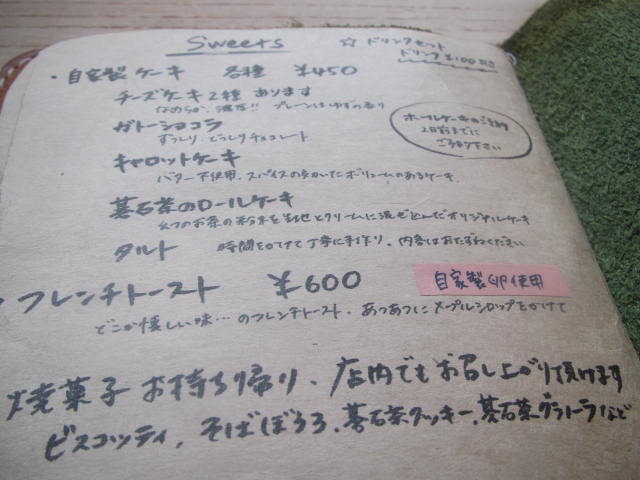 Sweets
☆ ドリンクセット
ドリンク ¥100引き
・自家製ケーキ 各種 ¥450
チーズケーキ2種 あります
なめらか、濃厚!! プレーンはゆずの香り
ガトーショコラ
ずっしり、どっしりチョコレート
ホールケーキのご予約
2日前までに
ご予約下さい
キャロットケーキ
バター不使用、スパイスのきいたボリュームのあるケーキ
碁石茶のロールケーキ
幻のお茶の粉末を生地とクリームに混ぜ込んだオリジナルケーキ
タルト 時間をかけて丁寧に手作り、内容はおたずねください
・フレンチトースト ¥600 自家製GIP使用
どこか懐しい味…のフレンチトースト、あつあつにメープルシロップをかけて
焼菓子 お持ち帰り、店内でもお召し上がり頂けます
ビスコッティ、そばぼうろ、碁石茶クッキー、碁石茶グラノーラなど